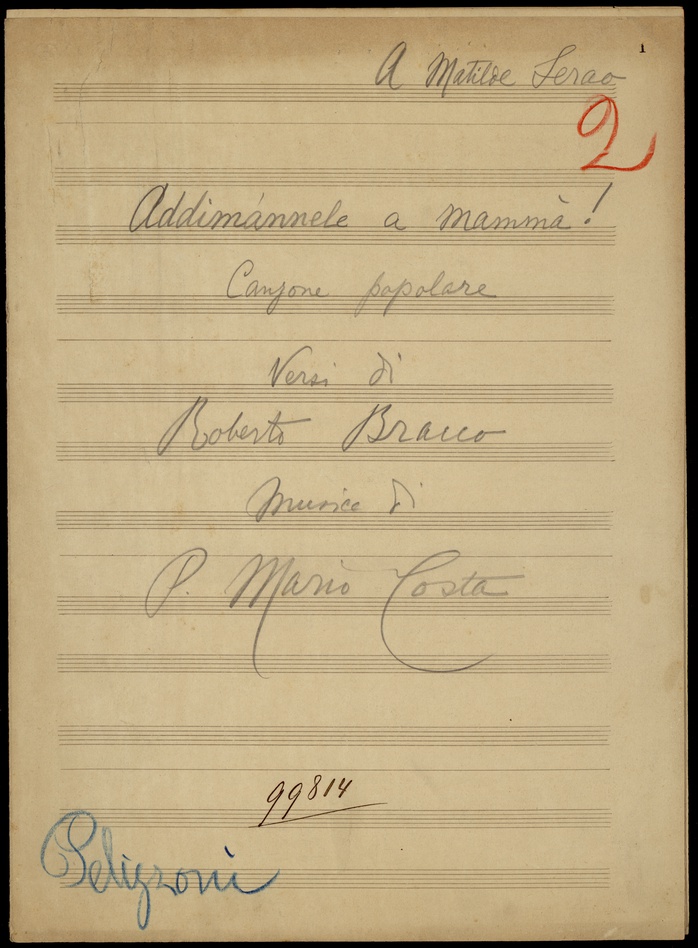 1
A Matilde Serao
2
Addimánnele a mammà!
Canzone popolare
Versi di
Roberto Bracco
Musica di
P. Mario Costa
99814
Pelizzoni